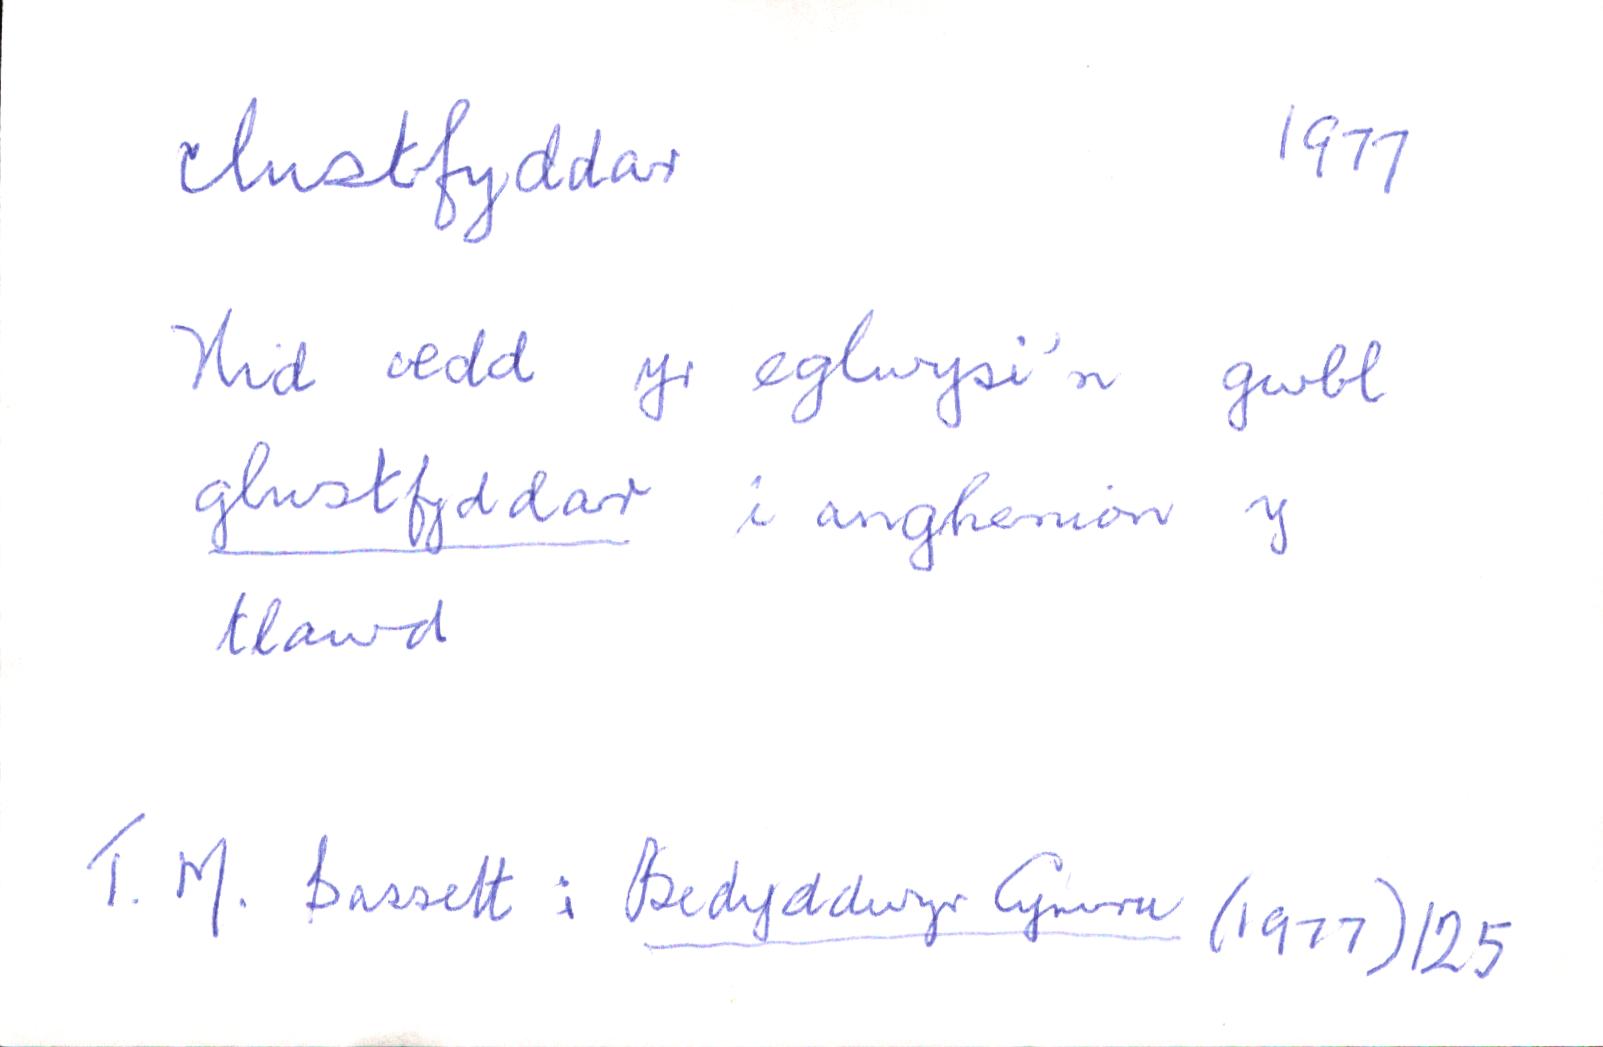 clustfyddar 1977
Nid oedd yr eglwysi'n gwbl
glustfyddar i anghenion y
tlawd
T. M. Bassett : Bedyddwyr Cymru (1977) 125